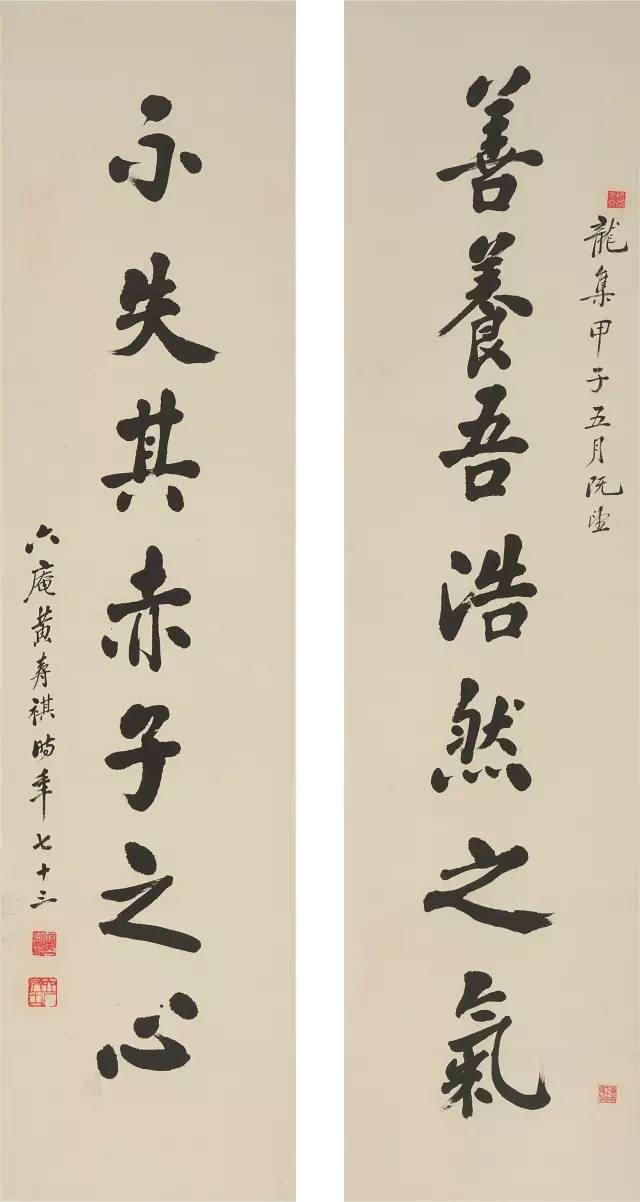 龍集甲子五月既望
善養吾浩然之氣
不失其赤子之心
六庵黃壽祺時年七十三